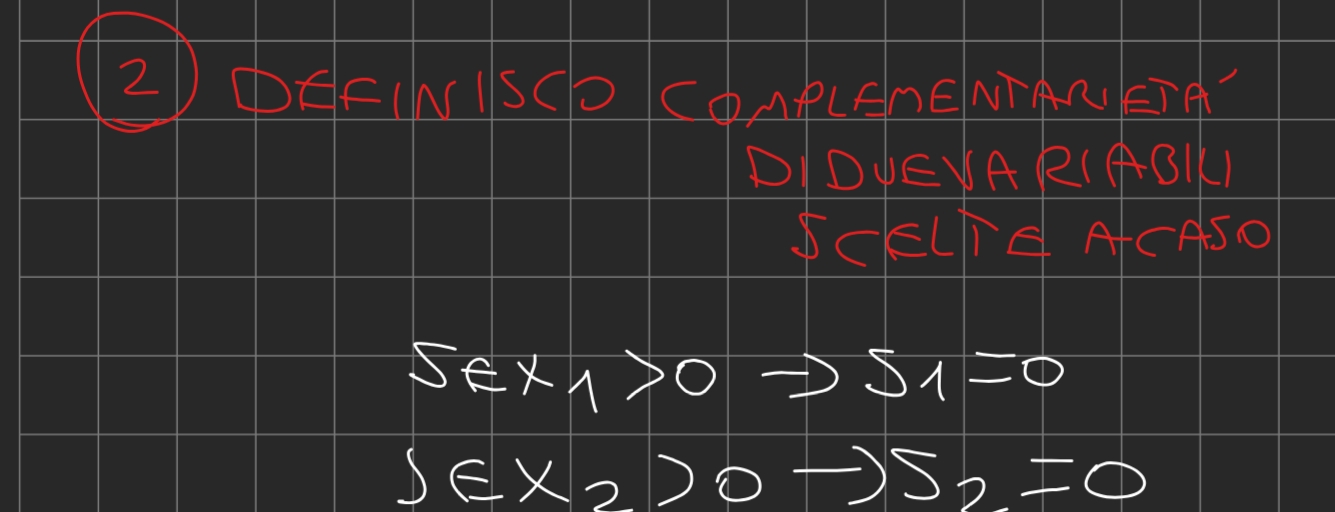 2 DEFINISCO COMPLEMENTARIETÁ
DI DUE VARIABILI
SCELTE A CASO
SE X1 > 0 → S1 = 0
SE X2 > 0 → S2 = 0